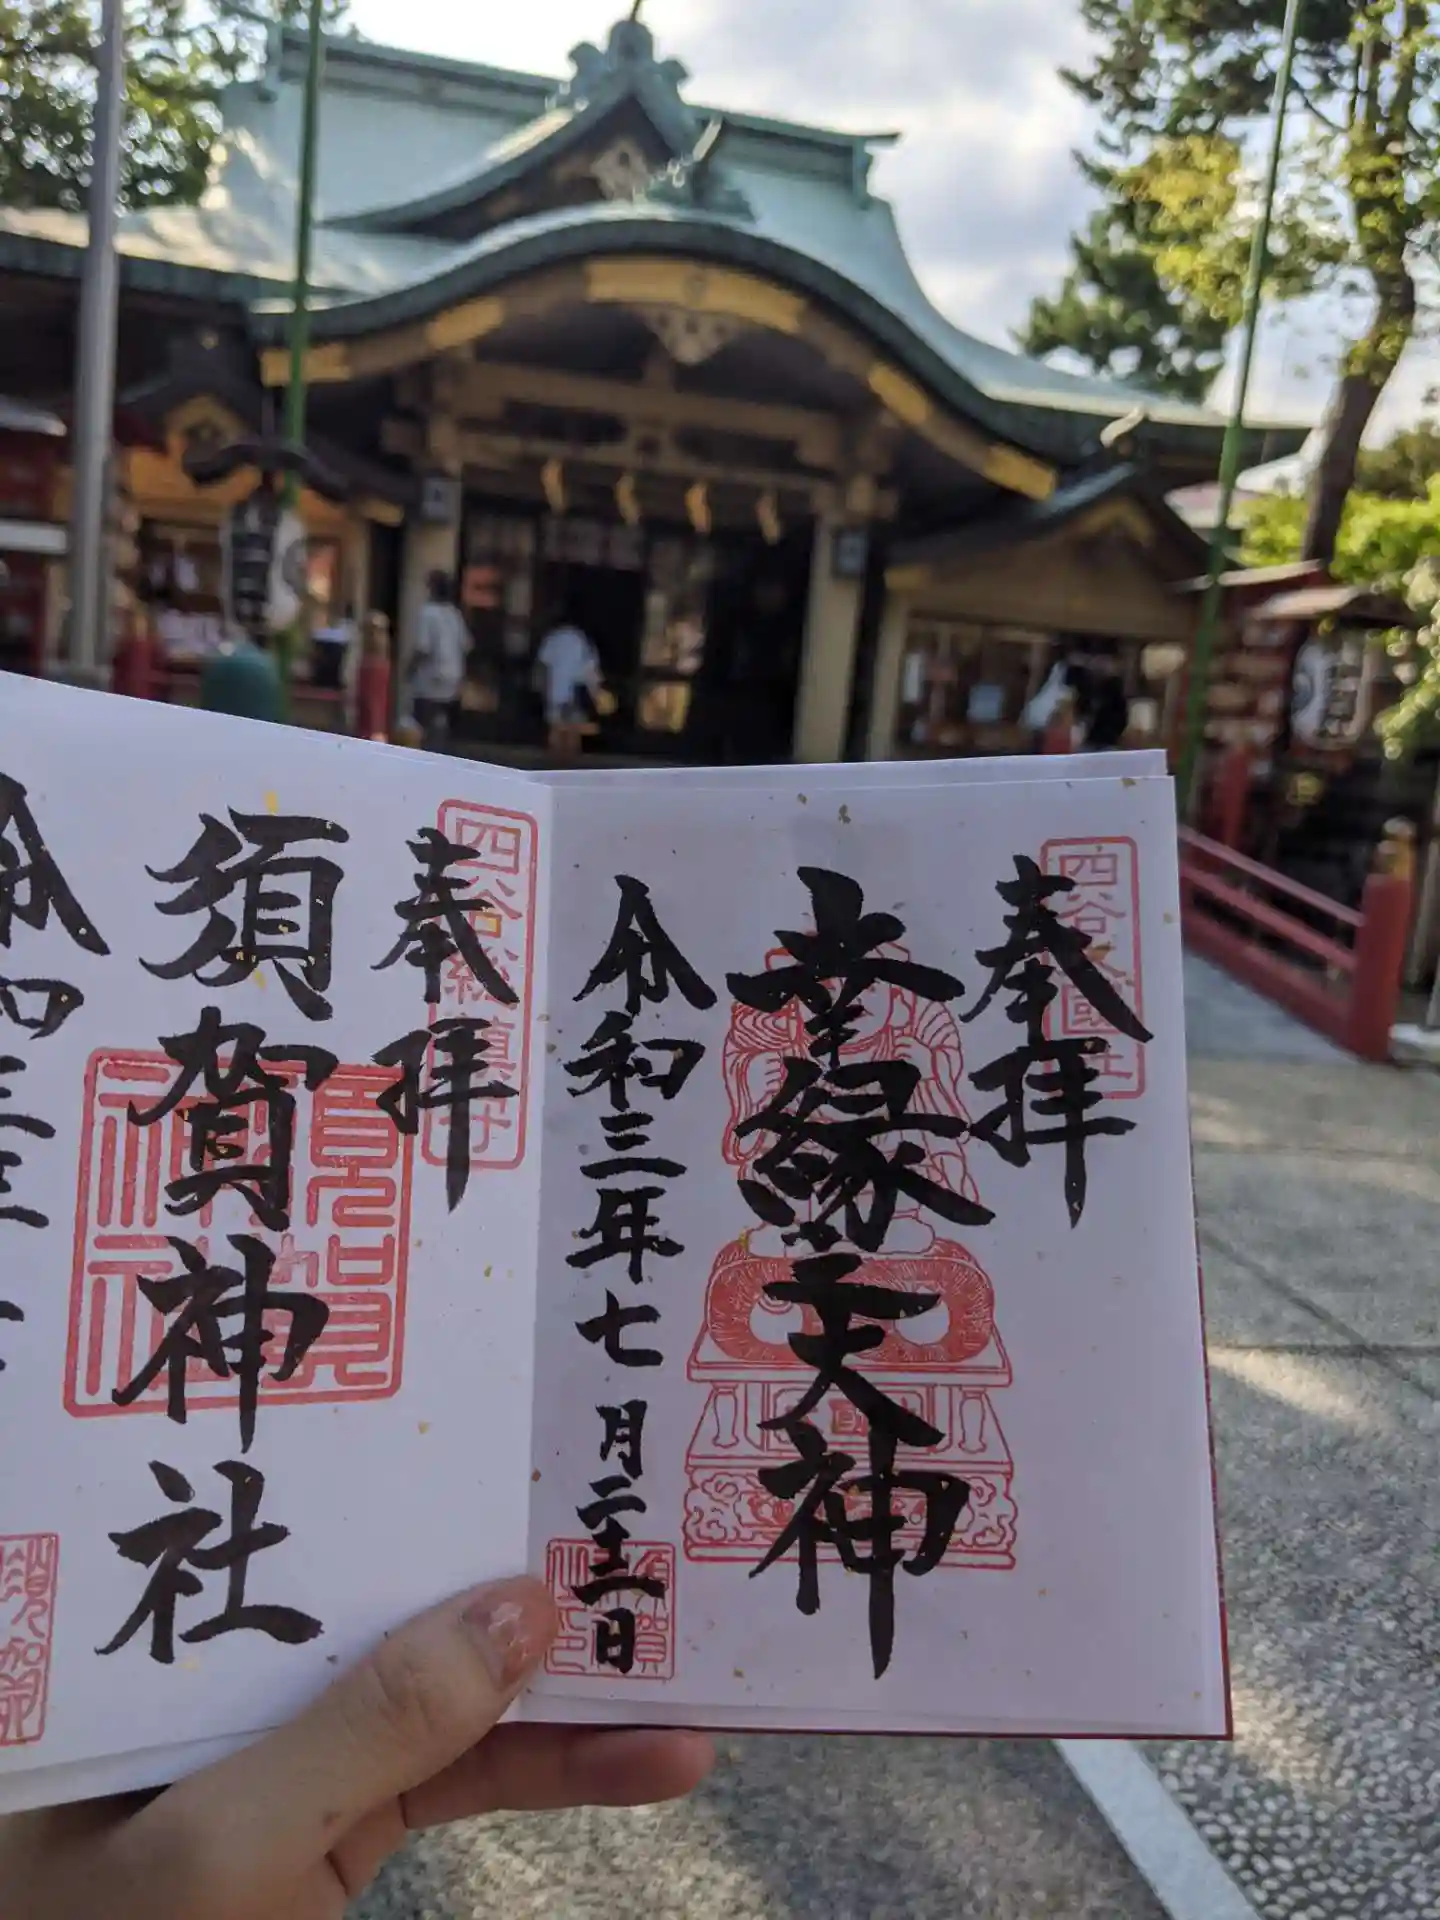 四谷大國社
奉拝
幸縁天神
令和三年七月二十三日
四谷総鎮守
奉拝
須賀神社
須賀神社
令和三